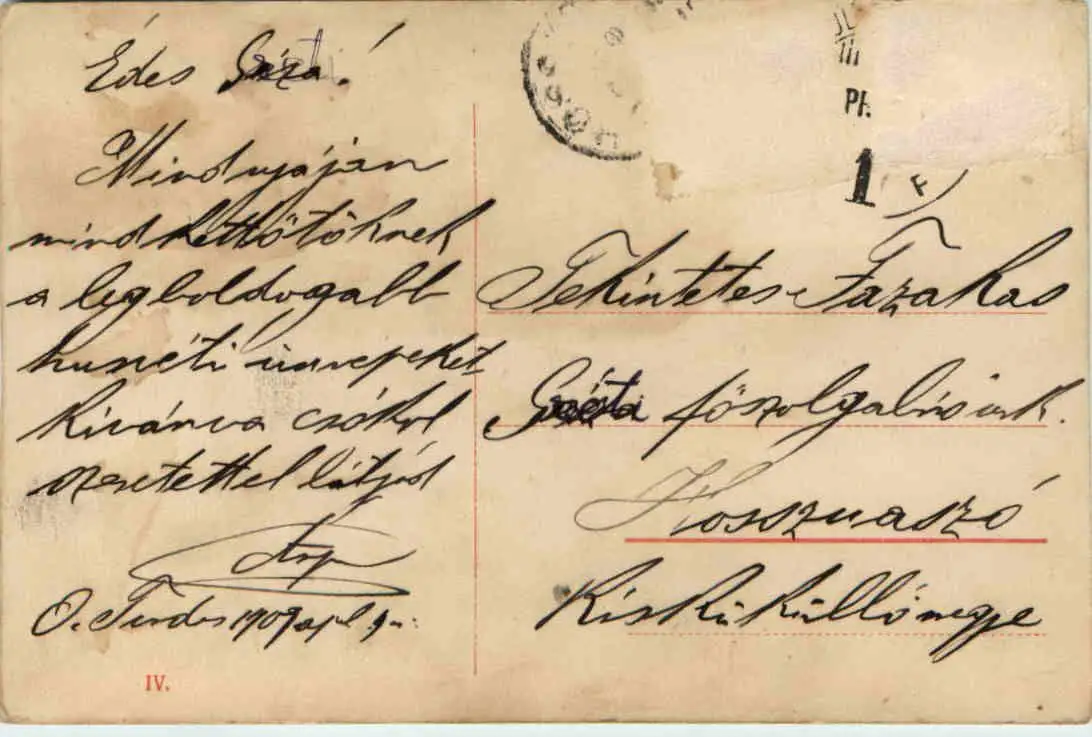 Édes Géza!
Mindnyáján
mindkettőtöknek
a legboldogabb
husvéti ünnepeket
kivánva csókol
szeretettel látjást
O. 1909 apl 9
IV.
PF.
1
F
Tekintetes Fazakas
Géza főszolgabiró urk.
Hosszuaszó
Kisküküllőmegye